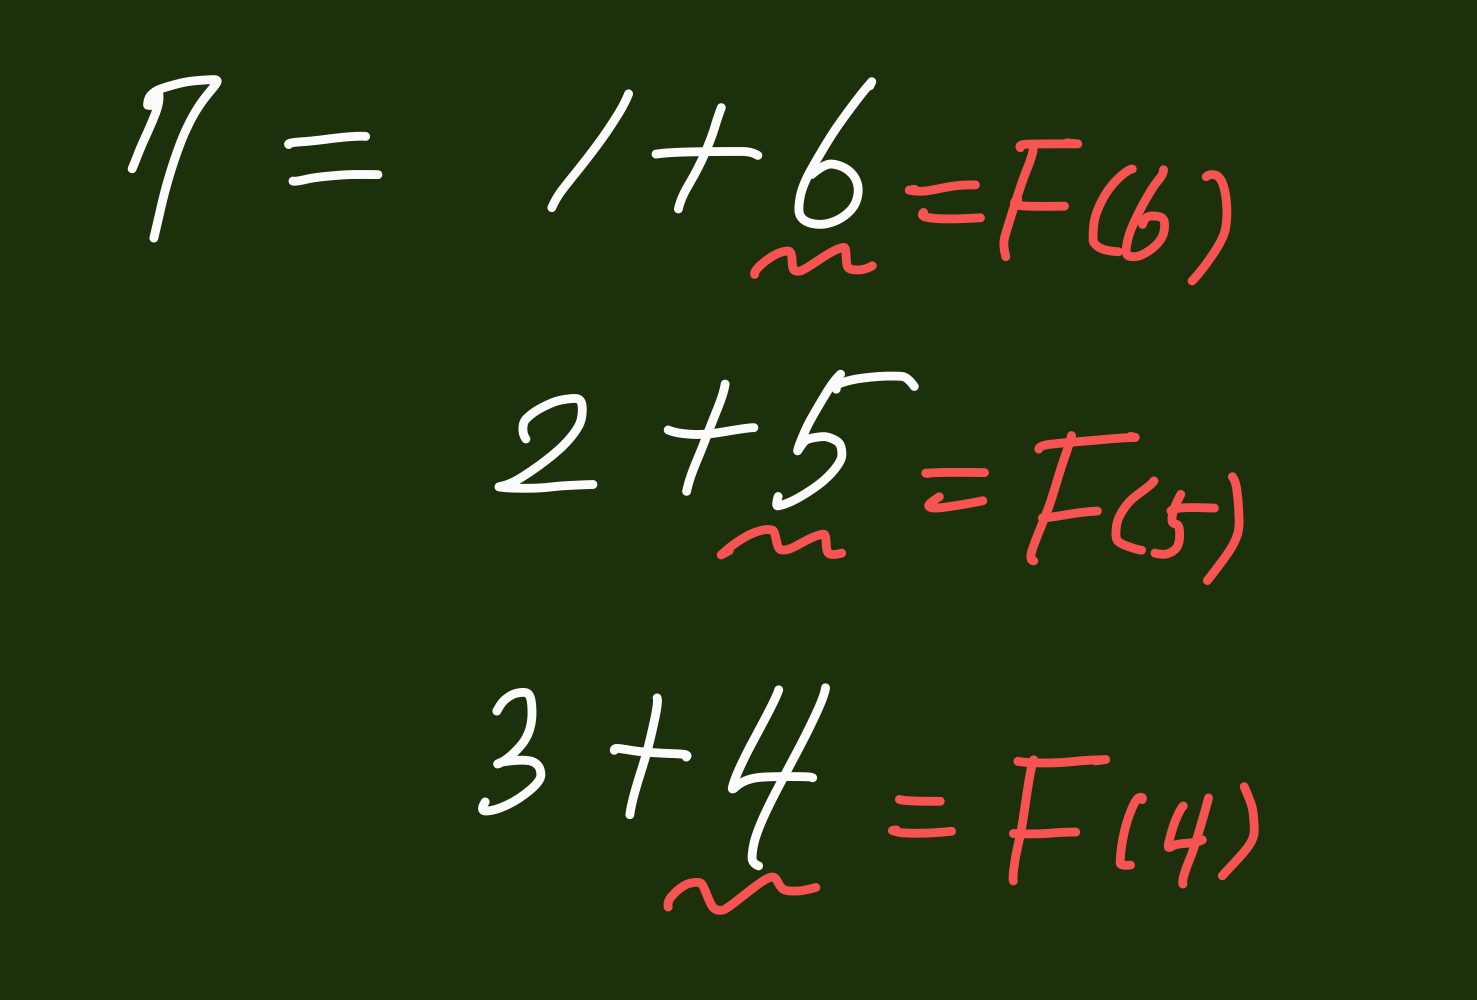 7 = 1+6 = F(6)
2+5 = F(5)
3+4 = F(4)